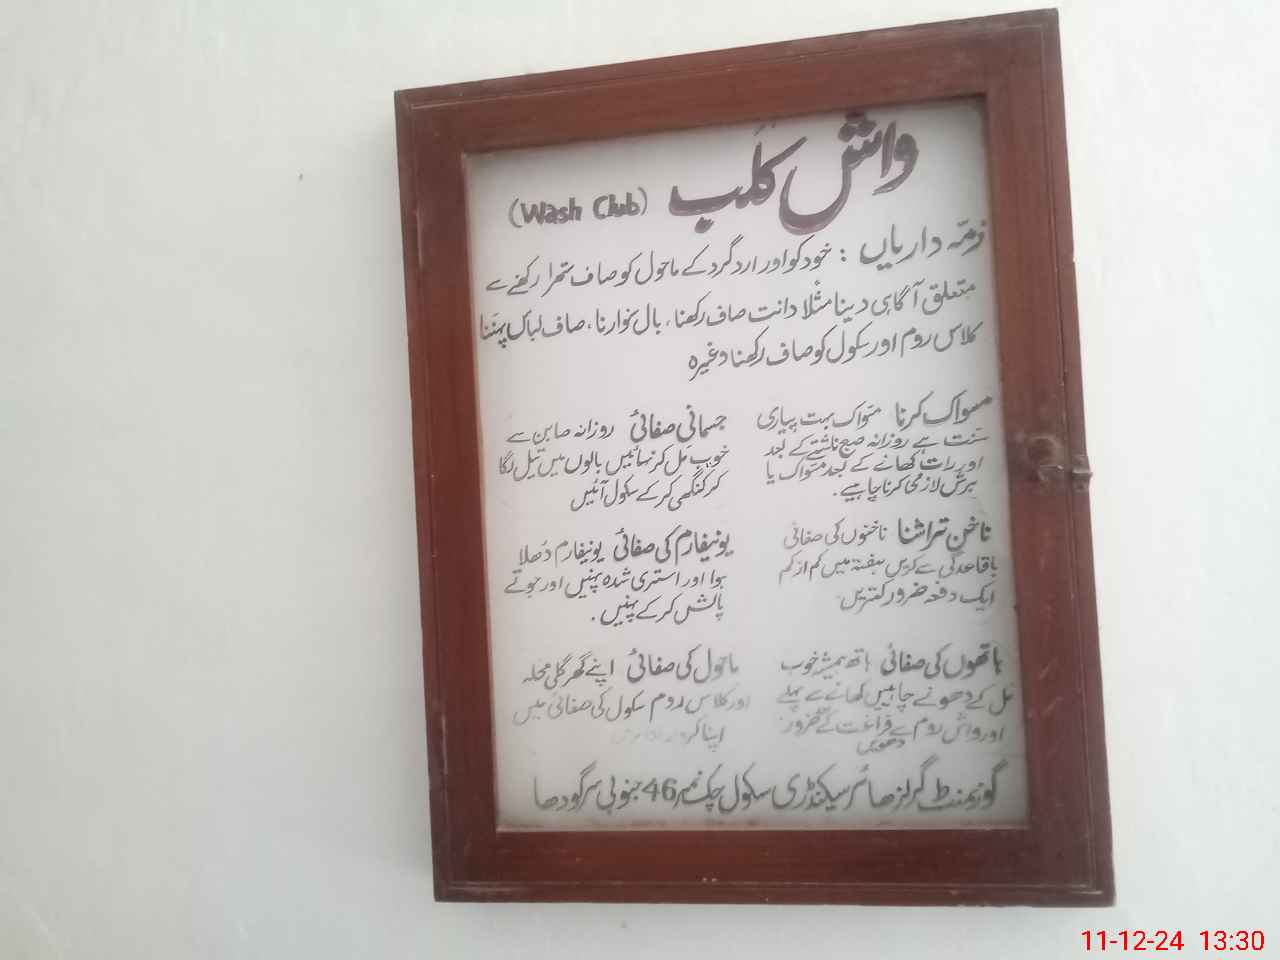 واش کلب (Wash Club)
ذمّہ داریاں : خود کو اور اردگرد کے ماحول کو صاف ستھرا رکھنے سے
متعلق آگاہی دینا مثلاً دانت صاف رکھنا، بال سنوارنا، صاف لباس پہننا
کلاس روم اور سکول کو صاف رکھنا وغیرہ
مسواک کرنا مسواک بہت پیاری
سنت ہے روزانہ صبح ناشتے کے بعد
اور رات کھانے کے بعد مسواک یا
برش لازمی کرنا چاہیے.
جسمانی صفائی روزانہ صابن سے
خوب مَل کر نہائیں بالوں میں تیل لگا
کر کنگھی کر کے سکول آئیں
ناخن تراشنا ناخنوں کی صفائی
باقاعدگی سے کریں ہفتہ میں کم از کم
ایک دفعہ ضرور کتریں
یونیفارم کی صفائی یونیفارم دُھلا
ہوا اور استری شدہ پہنیں اور جوتے
پالش کر کے پہنیں .
ہاتھوں کی صفائی ہاتھ ہمیشہ خوب
مَل کے دھونے چاہیں کھانے سے پہلے
اور واش روم سے فراغت کے ضرور
دھوئیں
ماحول کی صفائی اپنے گھر گلی محلہ
اور کلاس روم سکول کی صفائی میں
اپنا کردار
گورنمنٹ گرلز ھائر سیکنڈری سکول چک نمبر 46 جنوبی سرگودھا
11-12-24 13:30